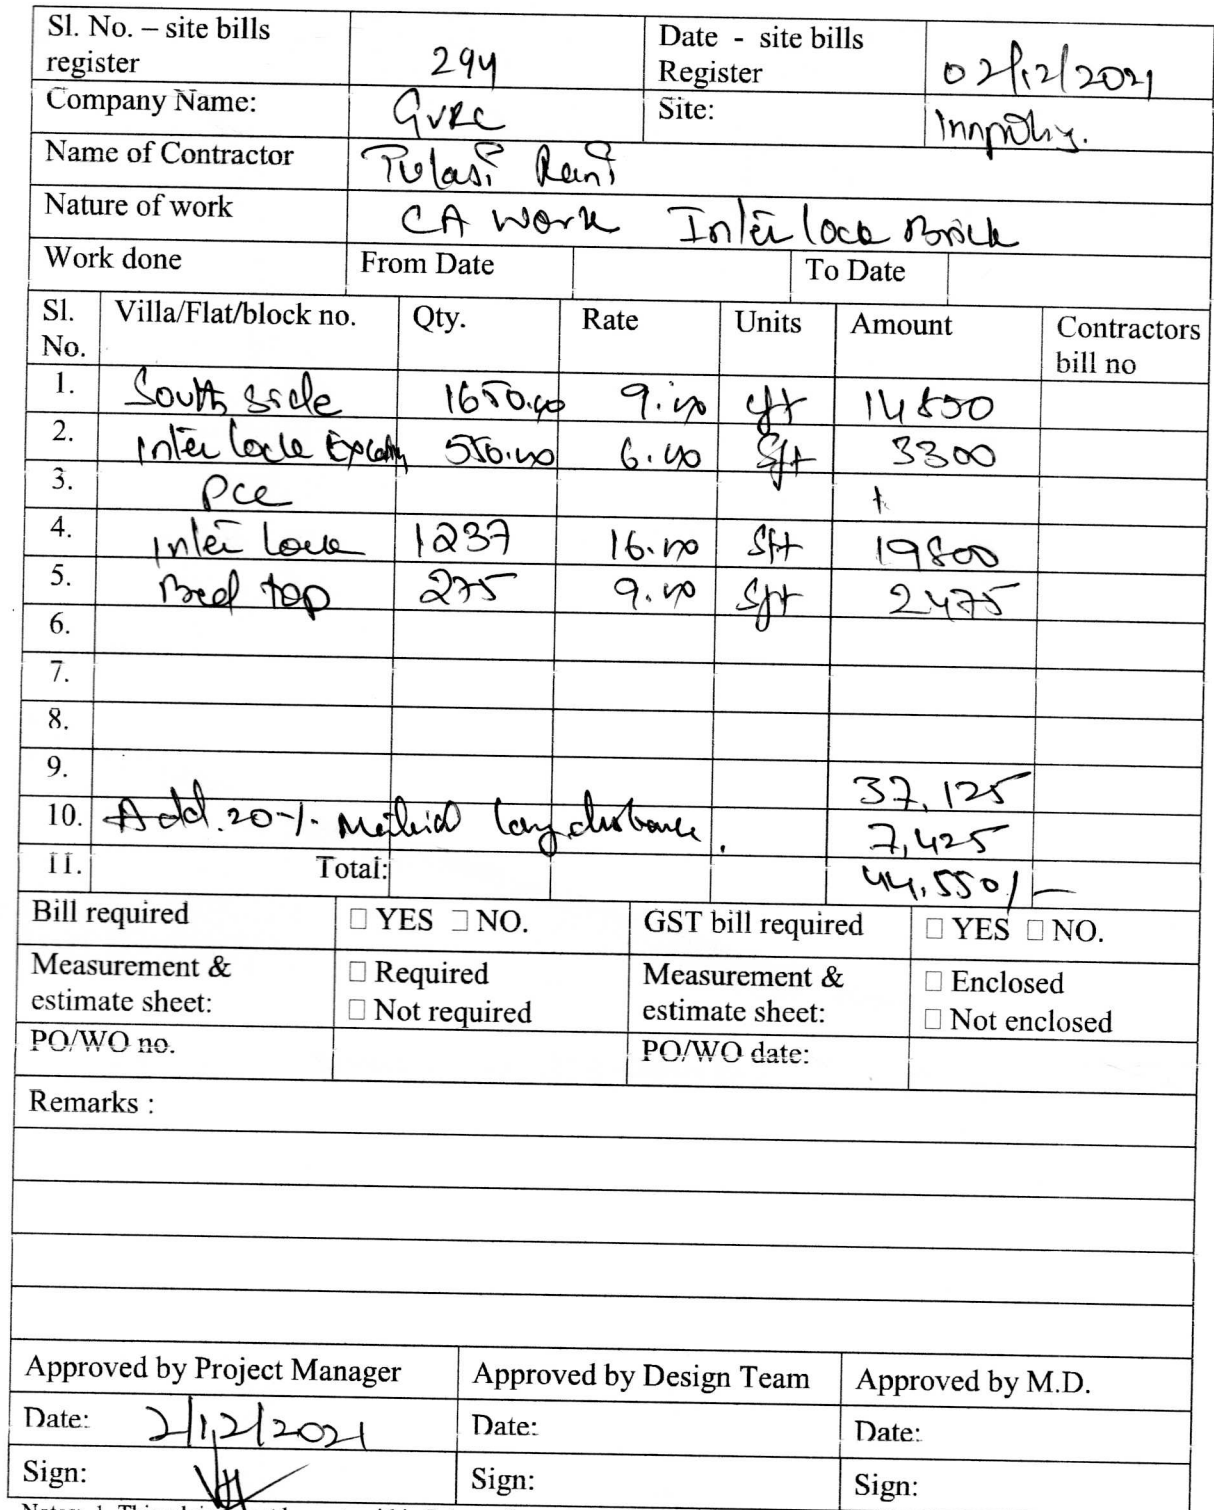 Sl. No. – site bills register 294 Date - site bills Register 02/12/2021
Company Name: GVRC Site: Innopolis.
Name of Contractor Tulasi Rani
Nature of work CA Work Inter lock Brick
Work done From Date To Date
Sl. No. Villa/Flat/block no. Qty. Rate Units Amount Contractors bill no
1. South side 1650.00 9.00 cft 14850
2. Inter lock 550.00 6.00 Sft 3300
3. PCC
4. Inter lock 1237 16.00 Sft 19800
5. Bed top 275 9.00 Sft 2475
6.
7.
8.
9. 37,125
10. Add. 20-/. Material long distance. 7,425
11. Total: 44,550/-
Bill required □ YES □ NO. GST bill required □ YES □ NO.
Measurement & estimate sheet: □ Required □ Not required Measurement & estimate sheet: □ Enclosed □ Not enclosed
PO/WO no. PO/WO date:
Remarks :
Approved by Project Manager Approved by Design Team Approved by M.D.
Date: 2/12/2021 Date: Date:
Sign: Sign: Sign: